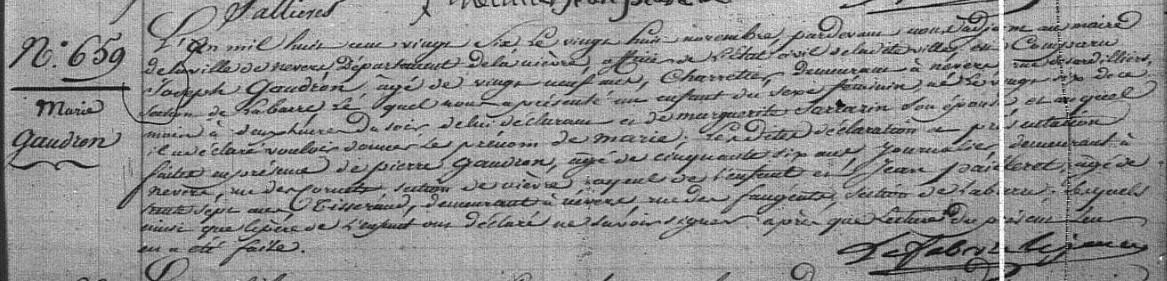 Nº 659
Marie
Gaudron
L'an mil huit cent vingt six, Le vingt huit novembre, pardevant nous adjoint au maire
dela ville de nevers Département dela nièvre, officier de l'état civil de ladite ville, est Comparu
Joseph Gaudron, âgé de vingt neuf ans, Charretier, demeurant à nevers, rue des
section de Labarre, Le quel nous a présenté un enfant du sexe féminin, né Le vingt six de ce
mois à deux heures du soir, de lui déclarant et de marguerite Sarrazin son épouse et auquel
il a déclaré vouloir donner Le prénom de marie; Les dites déclaration et présentation
faites en présence de pierre Gaudron, âgé de cinquante six ans, journalier, demeurant à
nevers, rue des section de nièvre, ayeul de l'enfant et Jean pailleret, âgé de
trente sept ans, Tisserand, demeurant à nevers rue des section de Labarre; Lesquels
ainsi que le père de L'enfant ont déclaré ne savoir signer après que Lecture du présent leur
en a été faite.